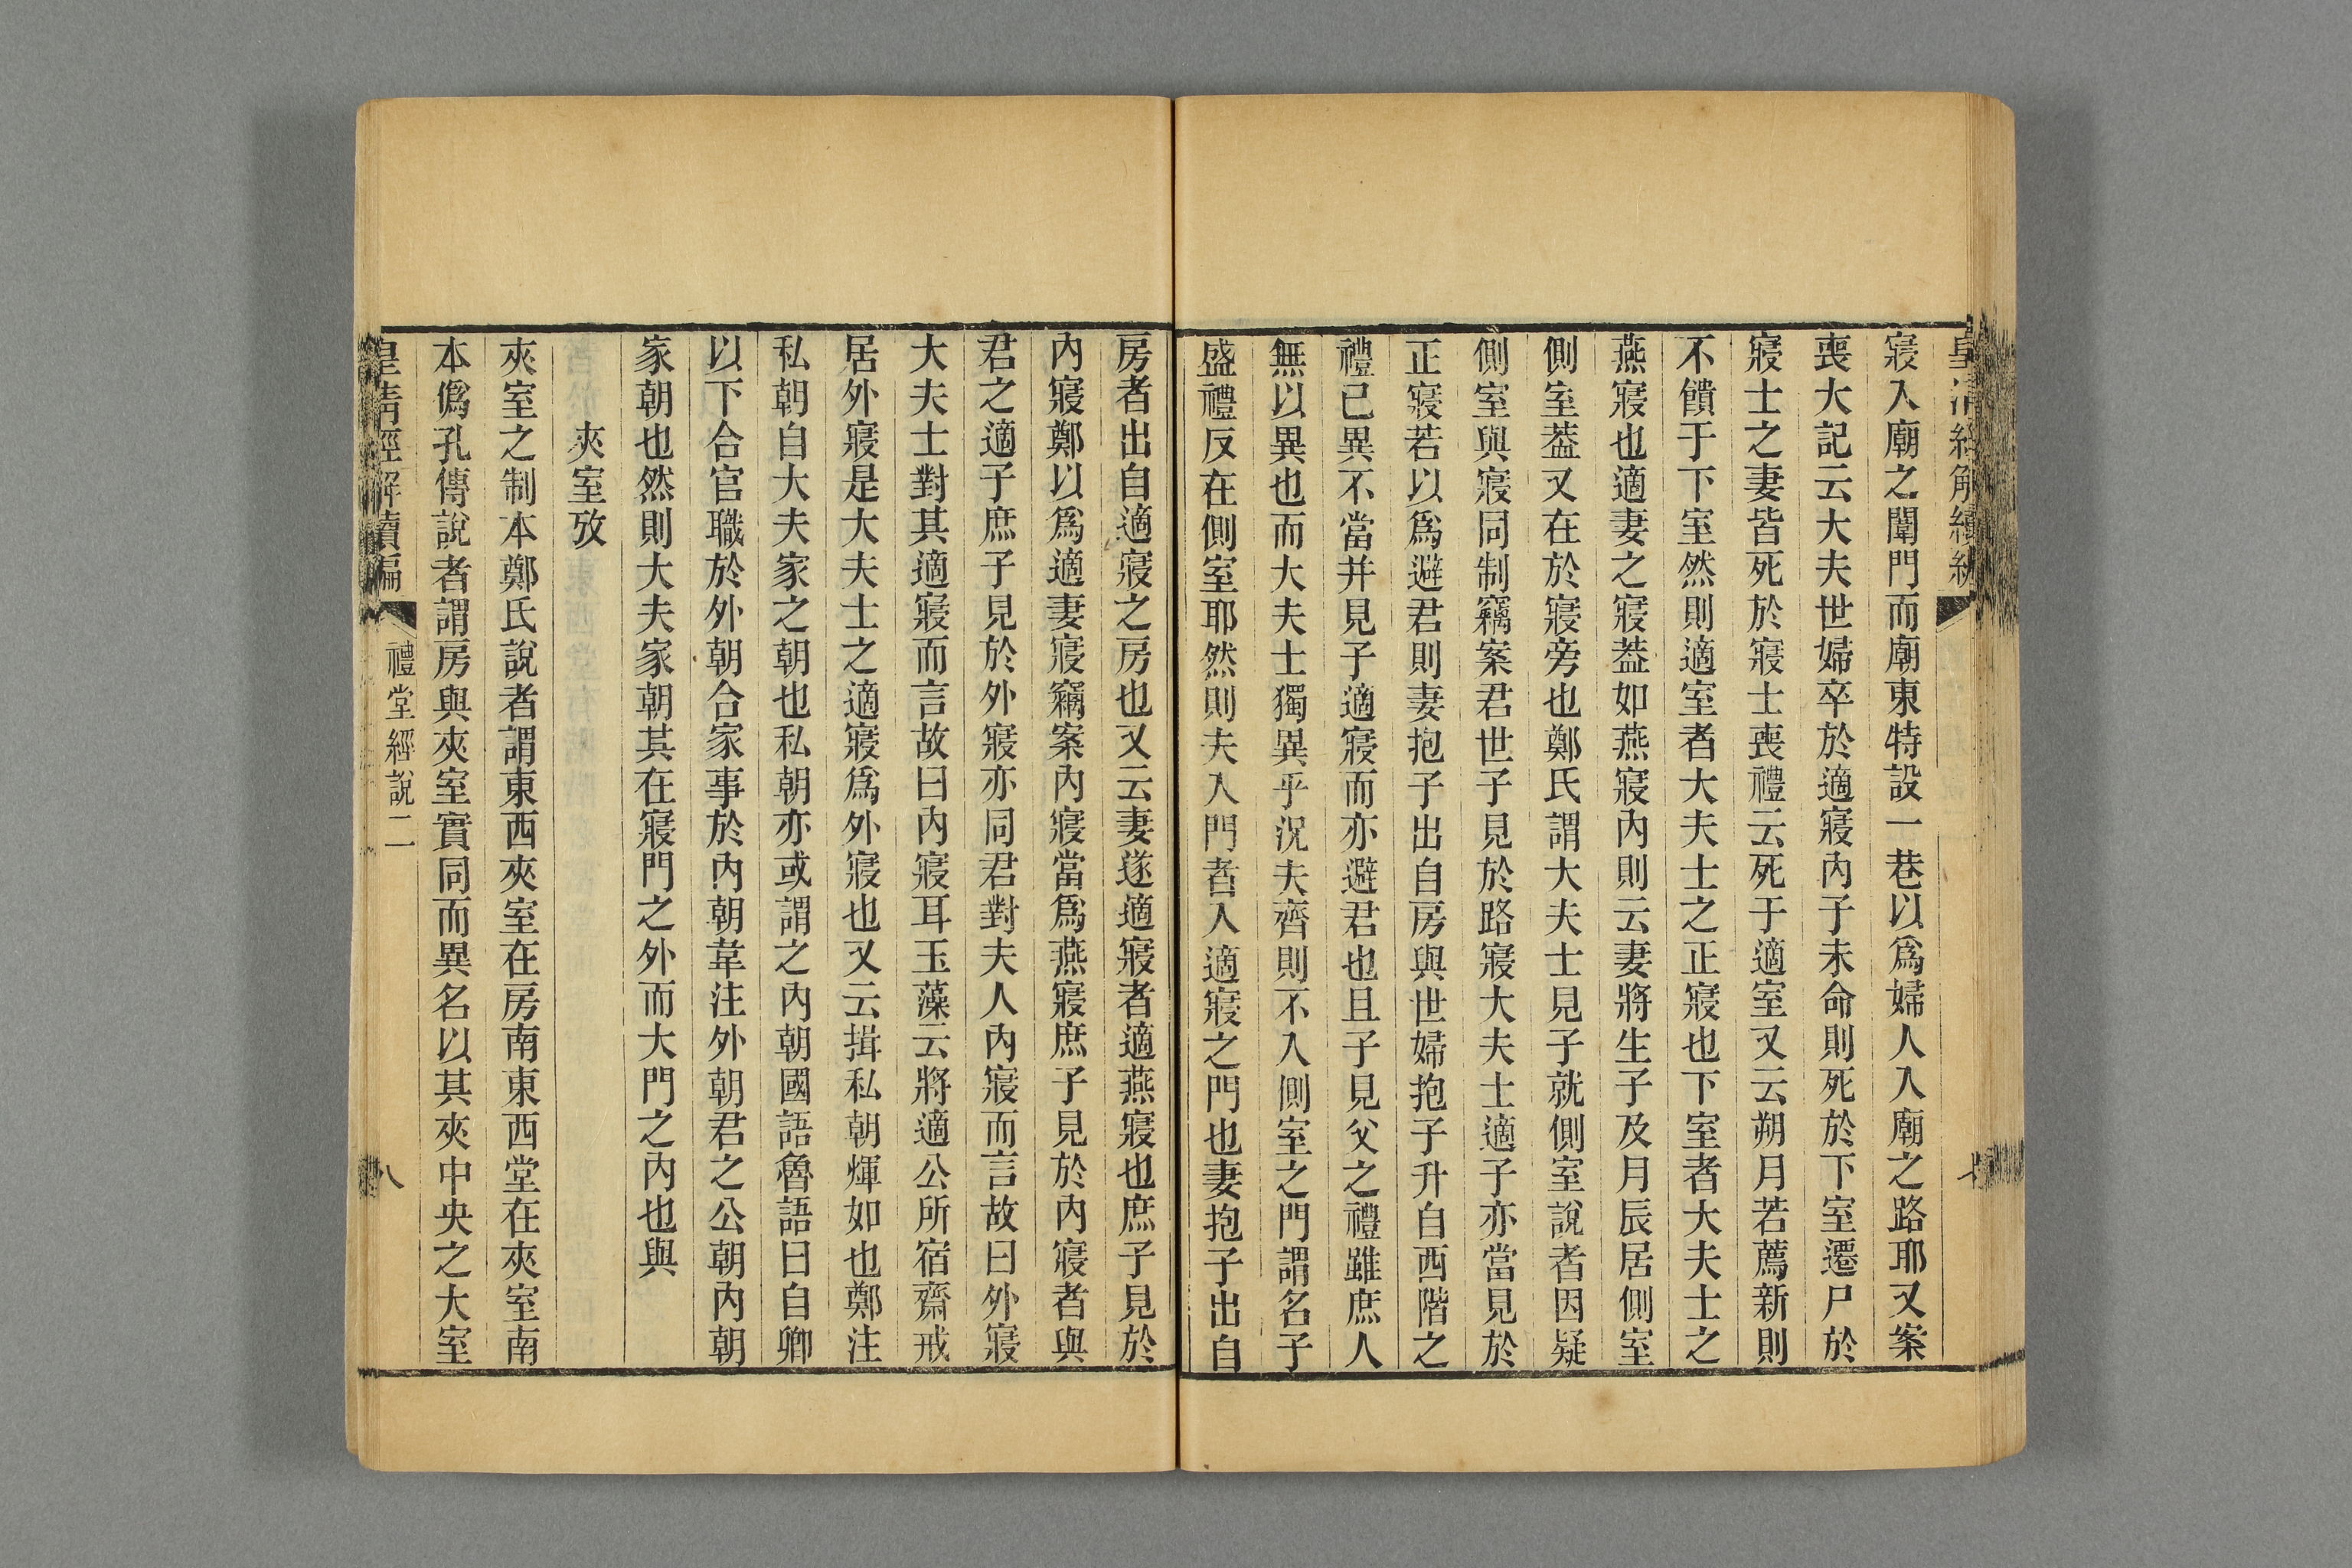 皇清經解續編
寢入廟之闈門而廟東特設一巷以爲婦人入廟之路耶又案
喪大記云大夫世婦卒於適寢內子未命則死於下室遷尸於
寢士之妻皆死於寢士喪禮云死于適室又云朔月若薦新則
不饋于下室然則適室者大夫士之正寢也下室者大夫士之
燕寢也適妻之寢葢如燕寢內則云妻將生子及月辰居側室
側室葢又在於寢旁也鄭氏謂大夫士見子就側室說者因疑
側室與寢同制竊案君世子見於路寢大夫士適子亦當見於
正寢若以爲避君則妻抱子出自房與世婦抱子升自西階之
禮已異不當并見子適寢而亦避君也且子見父之禮雖庶人
無以異也而大夫士獨異乎況夫齊則不入側室之門謂名子
盛禮反在側室耶然則夫入門者入適寢之門也妻抱子出自
房者出自適寢之房也又云妻遂適寢者適燕寢也庶子見於
內寢鄭以爲適妻寢竊案內寢當爲燕寢庶子見於內寢者與
君之適子庶子見於外寢亦同君對夫人內寢而言故曰外寢
大夫士對其適寢而言故曰內寢耳玉藻云將適公所宿齋戒
居外寢是大夫士之適寢爲外寢也又云揖私朝煇如也鄭注
私朝自大夫家之朝也私朝亦或謂之內朝國語魯語曰自卿
以下合官職於外朝合家事於內朝韋注外朝君之公朝內朝
家朝也然則大夫家朝其在寢門之外而大門之內也與
夾室攷
夾室之制本鄭氏說者謂東西夾室在房南東西堂在夾室南
本僞孔傳說者謂房與夾室實同而異名以其夾中央之大室
皇清經解續編
禮堂經說二
八